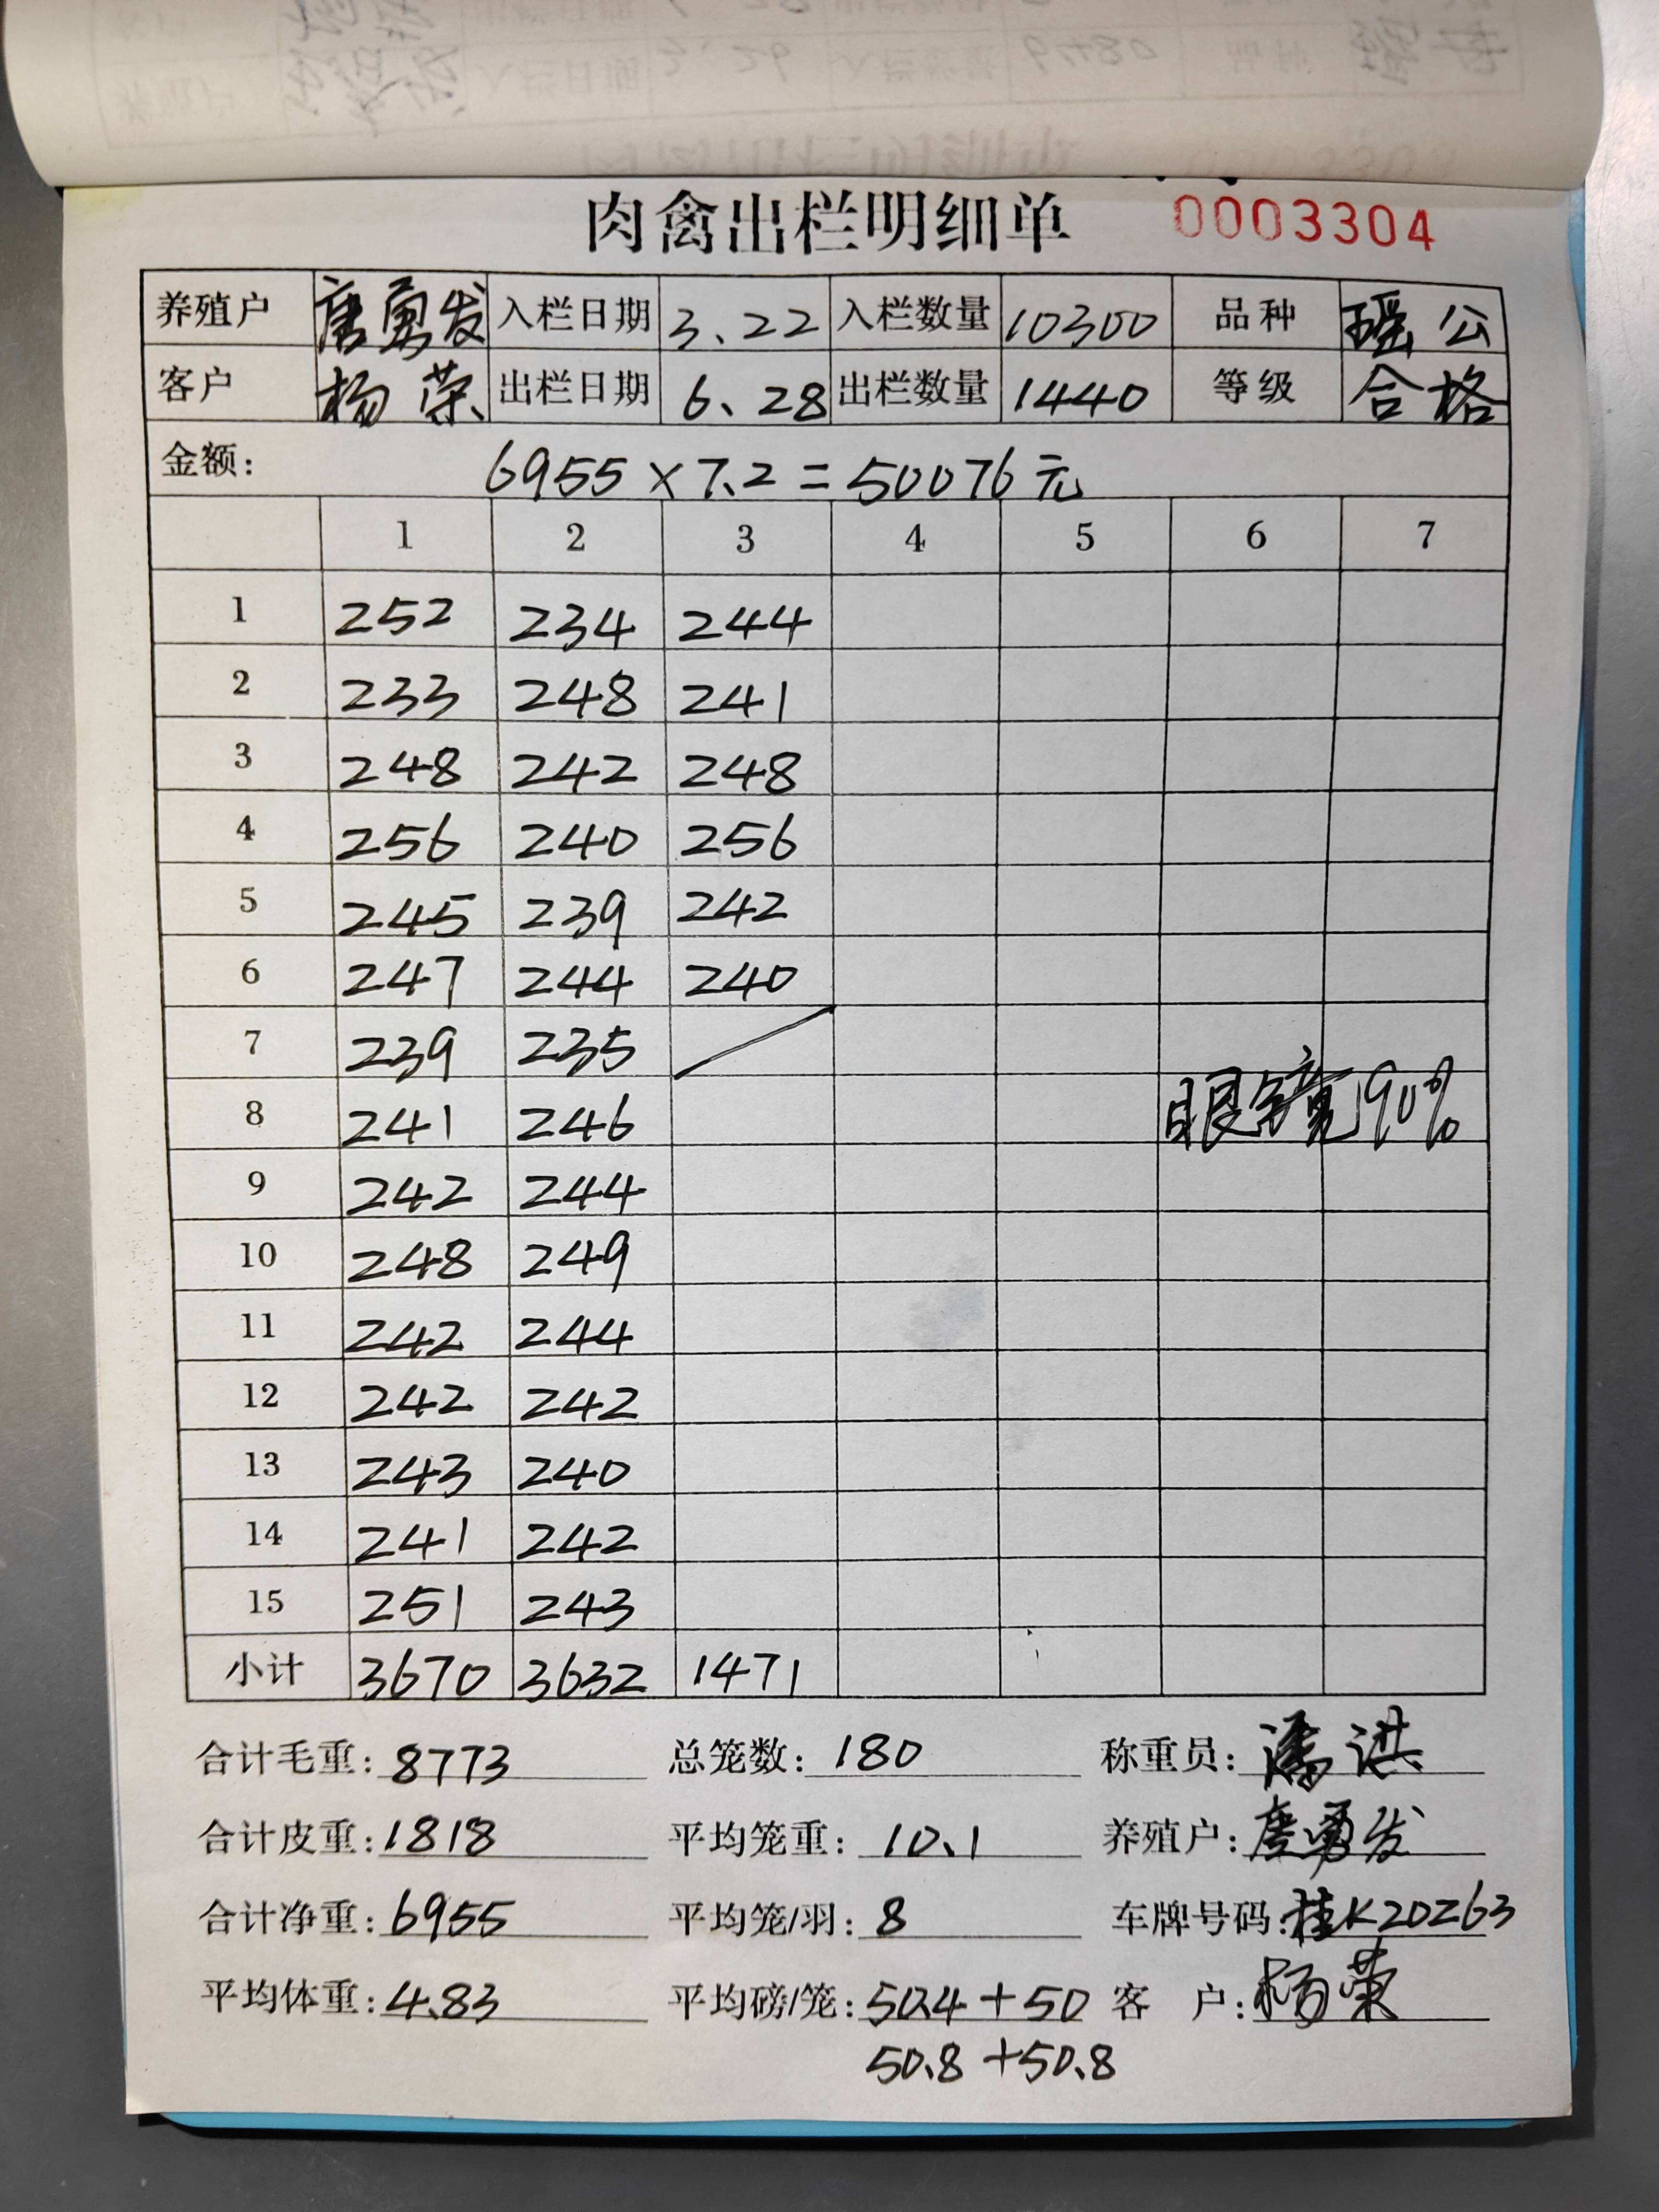 肉禽出栏明细单 0003304
养殖户 唐勇发 入栏日期 3、22 入栏数量 10300 品种 瑶公
客户 杨荣 出栏日期 6、28 出栏数量 1440 等级 合格
金额: 6955×7.2=50076元
1 2 3 4 5 6 7
1 252 234 244
2 233 248 241
3 248 242 248
4 256 240 256
5 245 239 242
6 247 244 240
7 239 235
8 241 246 眼镜90%
9 242 244
10 248 249
11 242 244
12 242 242
13 243 240
14 241 242
15 251 243
小计 3670 3632 1471
合计毛重: 8773 总笼数: 180 称重员: 潘洪
合计皮重: 1818 平均笼重: 10.1 养殖户: 唐勇发
合计净重: 6955 平均笼/羽: 8 车牌号码: 桂K20Z63
平均体重: 4.83 平均磅/笼: 50.4+50 客 户: 杨荣
50.8+50.8